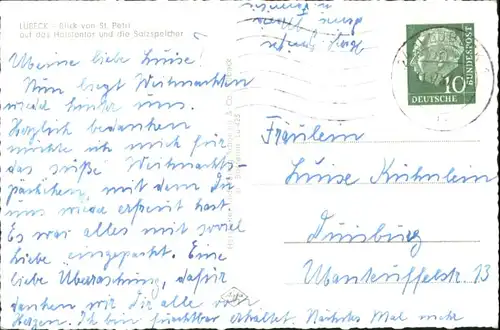 LÜBECK - Blick von St. Petri
auf das Holstentor und die Salzspeicher
Meine liebe Luise!
Nun liegt Weihnachten
wieder hinter uns.
Herzlich bedanken
möchte ich mich für
das süße Weihnachts-
päckchen, mit dem Du
uns wieder erfreut hast.
Es war alles mit soviel
Liebe eingepackt. Eine
liebe Überraschung, dafür
danken wir Dir alle von
Herzen. Ich bin furchtbar erkältet. Nächstes Mal mehr
10
DEUTSCHE
BUNDESPOST
Fräulein
Luise
Duisburg
Manteuffelstr. 13